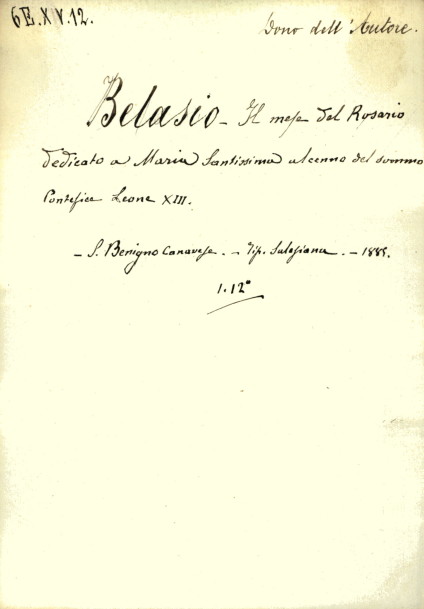 6E.XV.12.
Dono dell'Autore.
Belasio - Il mese del Rosario
dedicato a Maria Santissima al cenno del sommo
Pontefice Leone XIII.
- S. Benigno Canavese. - Tip. Salesiana. - 1885.
1.12°